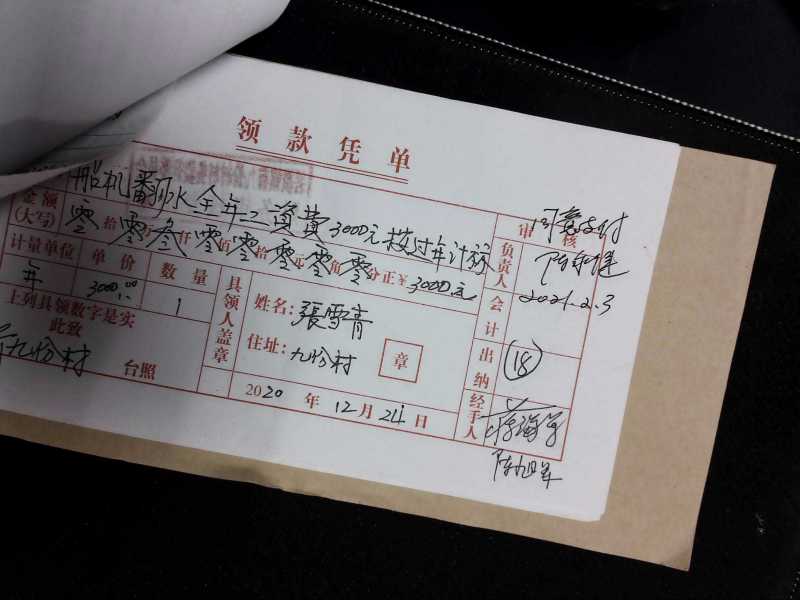 领款凭单
船机翻水全年工资费3000元按过年计酬
金额(大写) 零拾零万叁仟零佰零拾零元零角零分正¥3000元
计量单位 单价 数量
年 3000.00 1
上列具领数字是实
此致
九份村 台照
具领人盖章
姓名:張雪青
住址:九份村 章
2020年12月24日
审核
负责人 同意支付
2021.2.3
会计
出纳 (18)
经手人
陈旭军